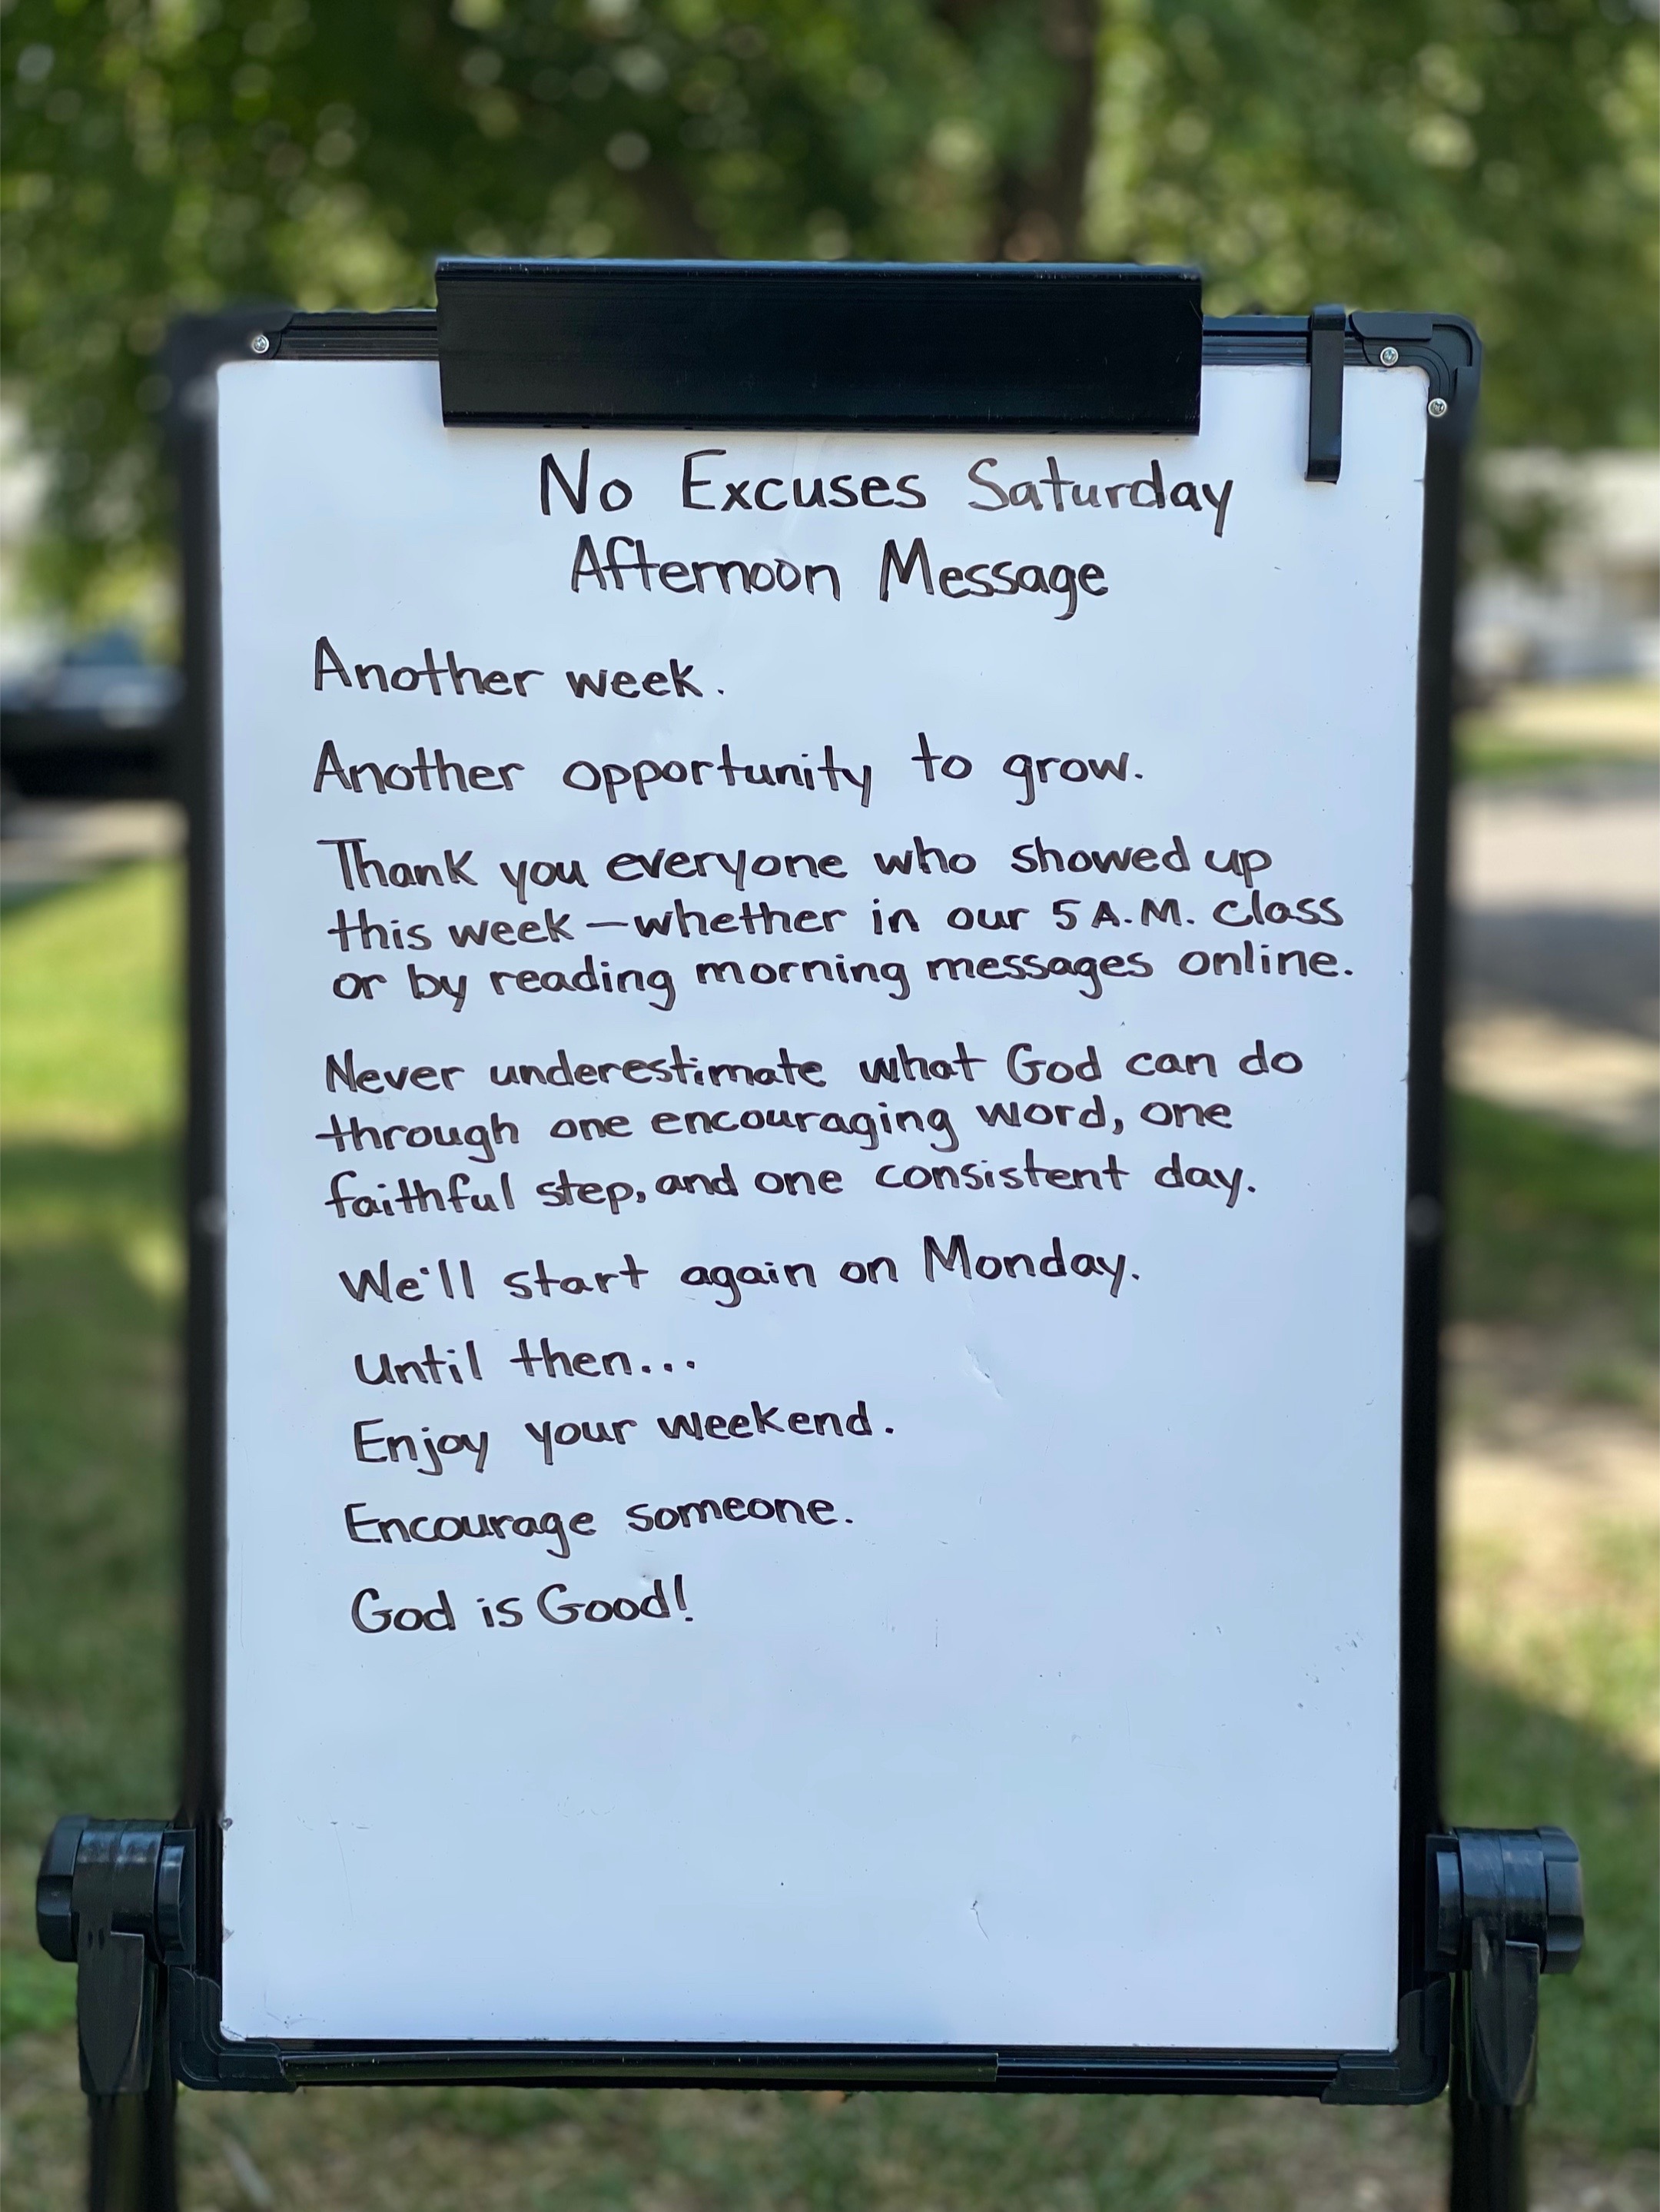 No Excuses Saturday
Afternoon Message
Another week.
Another opportunity to grow.
Thank you everyone who showed up
this week—whether in our 5 A.M. class
or by reading morning messages online.
Never underestimate what God can do
through one encouraging word, one
faithful step, and one consistent day.
We'll start again on Monday.
Until then...
Enjoy your weekend.
Encourage someone.
God is Good!